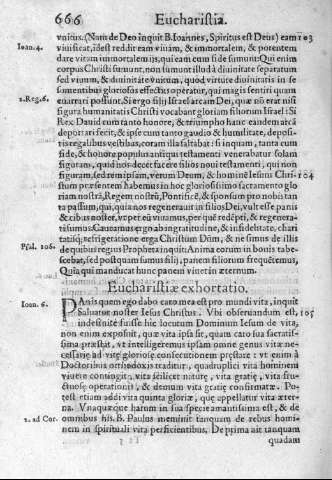 666 Eucharistia.
vnitus. (Nam de Deo inquit B. Ioannes, Spiritus est Deus) eam 103
Ioan. 4. viuificat, idest reddit eam viuam, & immortalem, & potentem
dare vitam immortalem ijs, qui eam cum fide sumunt: Qui enim
corpus Christi sumunt, non sumunt illud à diuinitate separatum
sed viuum, & diuinitate vnitum, quod virtute diuinitatis in se
sumentibus gloriosos effectus operatur, qui magis sentiri quam
2. Reg. 6. enarrari possunt. Si ergo filij Israel arcam Dei, quæ nō erat nisi
figura humanitatis Christi vocabant gloriam filiorum Israel: Si
Rex Dauid cum tanto honore, & triumpho hanc eandem arcā
deportari fecit, & ipse cum tanto gaudio & humilitate, deposi-
tis regalibus vestibus, coram illa saltabat: si inquam, tanta cum
fide, & honore populus antiqui testamenti venerabatur solam
figuram, quid nos decet facere filios noui testamenti, qui non
figuram, sed rem ipsam, verum Deum, & hominē Iesum Chri- 104
stum præsentem habemus in hoc gloriosissimo sacramento glo
riam nostrā, Regem nostrū, Pontificē, & sponsum pro nobis tan
ta passum, qui, quia nos regenerauit in filios Dei, vult esse panis
& cibus noster, vt per eū viuamus, per quē redēpti, & regenera-
ti sumus. Caueamus ergo ab ingratitudine, & infidelitate, chari
tatisq; refrigeratione erga Christum Dūm, & ne simus de illis
Psal. 106. de quibus regius Propheta inquit: Anima eorum in bonis tabe-
scebat, sed postquam sumus filij, panem filiorum frequētemus,
Quia qui manducat hunc panem viuet in æternum.
Eucharistiæ exhortatio.
Ioan. 6. PAnis quem ego dabo caro mea est pro mundi vita, inquit
Saluator noster Iesus Christus. Vbi obseruandum est, 105
indefinite fuisse hic locutum Dominum Iesum de vita,
non enim exposuit, quæ vita ipsa sit, quam caro sua sacratis-
sima præstat, vt intelligeremus ipsam omne genus vitæ ne-
cessariæ ad vitę gloriosę consecutionem pręstare: vt enim à
Doctoribus orthodoxis traditur, quadruplici vita hominem
viuere contingit, vita scilicet naturę, vita gratię, vita fru-
ctuosę operationis, & demum vita gratię confirmatæ. Po-
test etiam addi vita quinta gloriæ, quę appellatur vita æter-
na. Vnaquæque harum in sua specie amantissima est, & de
2. ad Cor. omnibus his B. Paulus meminit tanquam de rebus homi-
nem in spirituali vita perficientibus. De prima ait tanquam
quadam